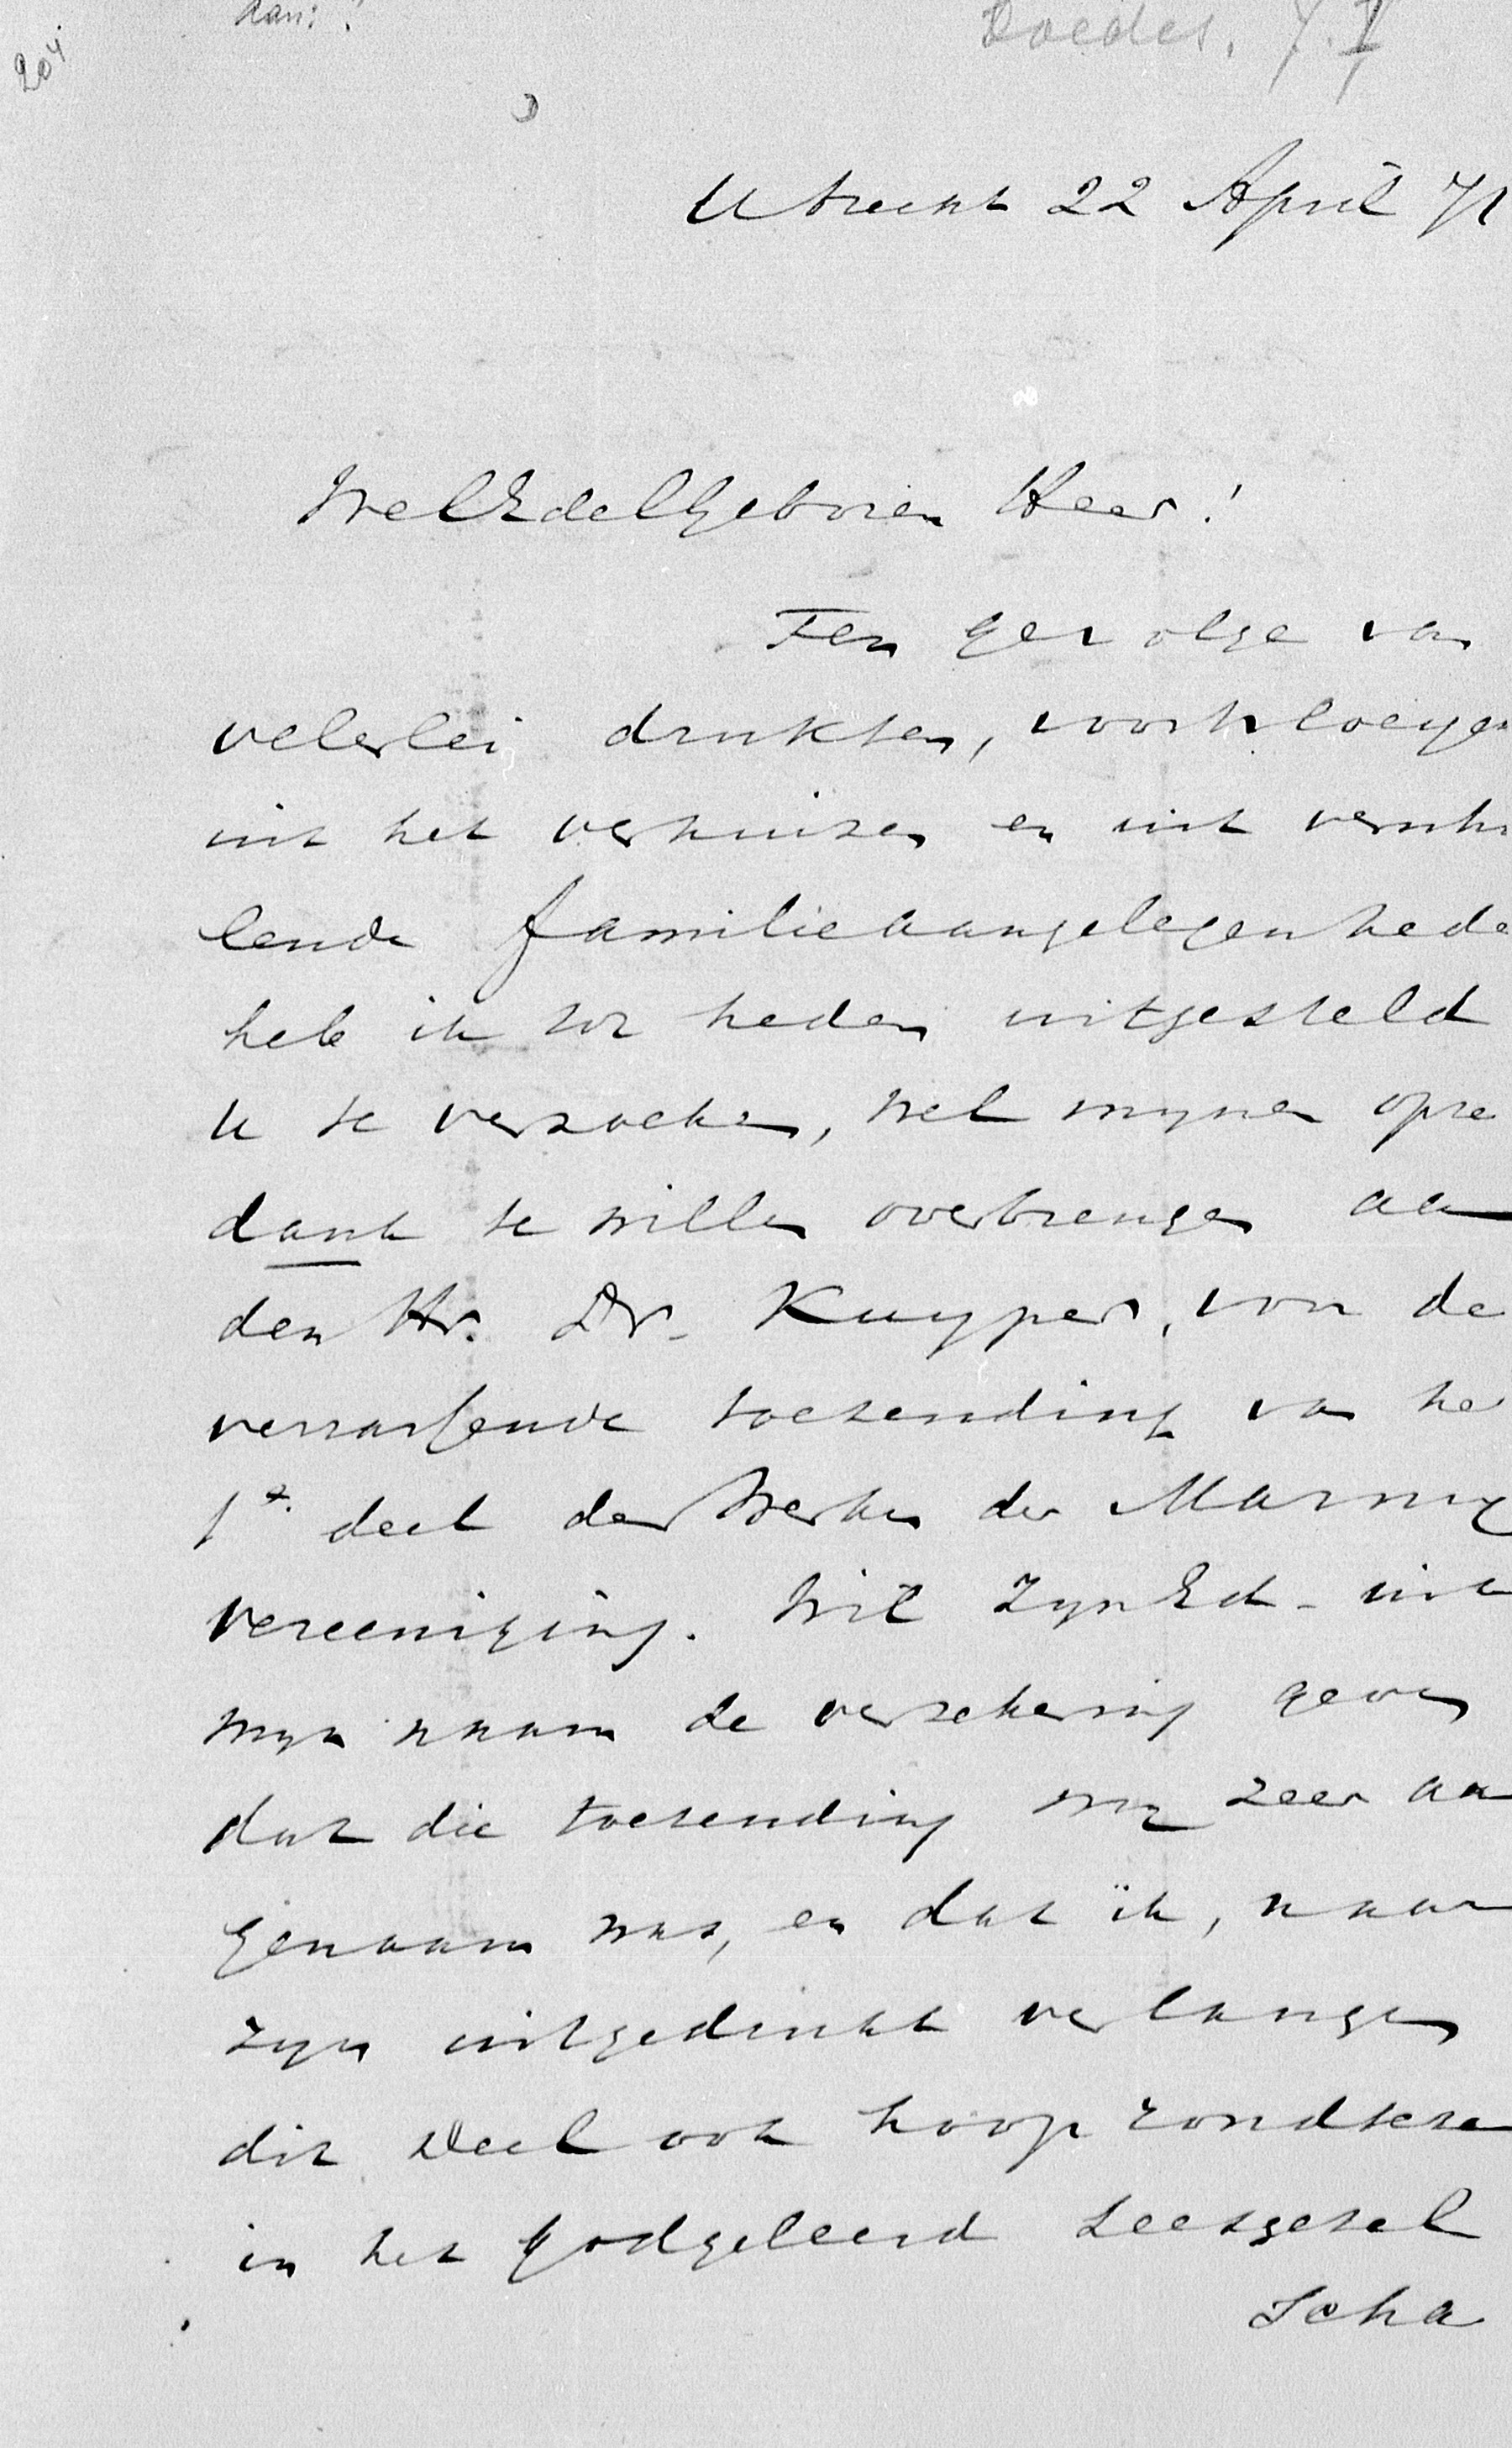 aan: !
Doedes, J. I
204
Utrecht 22 April 71
WelEdelGeboren Heer!
Ten gevolge van
velerlei drukten, voortvloeyen
uit het verhuizen en uit versch
lende familieaangelegenhede
heb ik tot heden uitgesteld
U te verzoeken, wel mynen opre
dank te willen overbrengen aan
den Hr. Dr. Kuyper, voor de
verrassende toezending van het
1e. deel der Werken der Marnix
vereeniging. Wil ZynEd. uit
myn naam de verzekering geven
dat die toezending my zeer aan
genaam was, en dat ik, naar
zyn uitgedrukt verlangen
dit Deel ook hoop rondteze
in het Godgeleerd Leesgezel
Scha